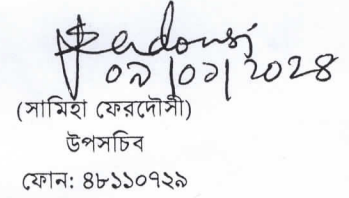 Ferdousi
০৯|০১|২০২৪
(সামিহা ফেরদৌসী)
উপসচিব
ফোন: ৪৮১১০৭২৯